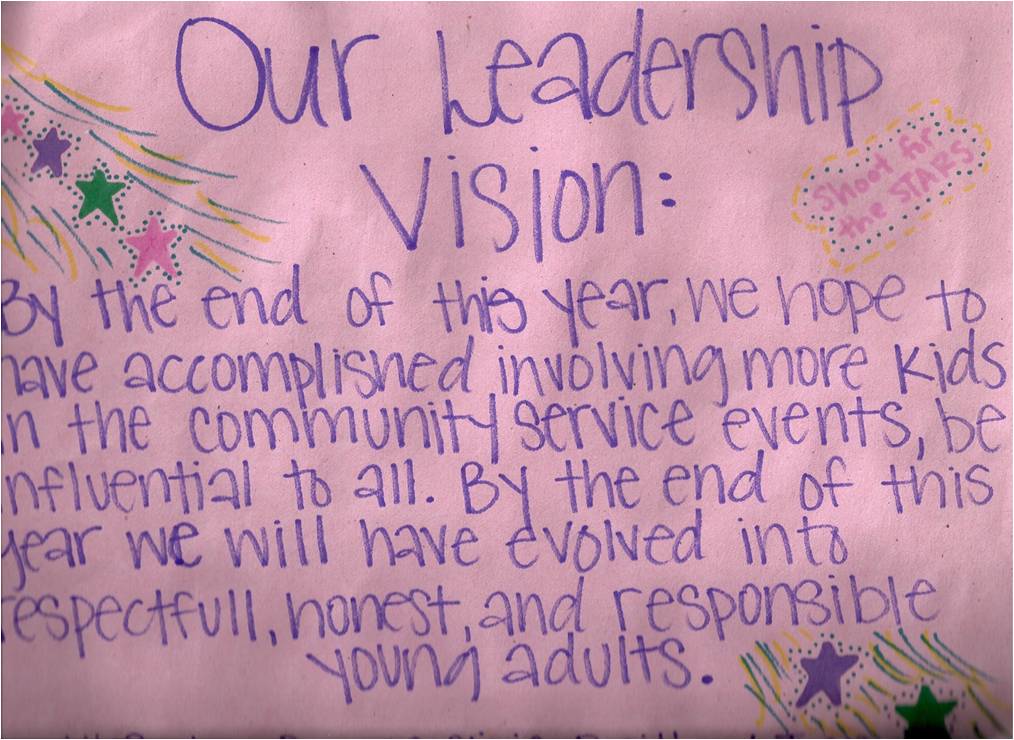 Our Leadership
Vision:
Shoot for
the STARS
By the end of this year, we hope to
have accomplished involving more kids
in the community service events, be
influential to all. By the end of this
year we will have evolved into
respectfull, honest, and responsible
young adults.